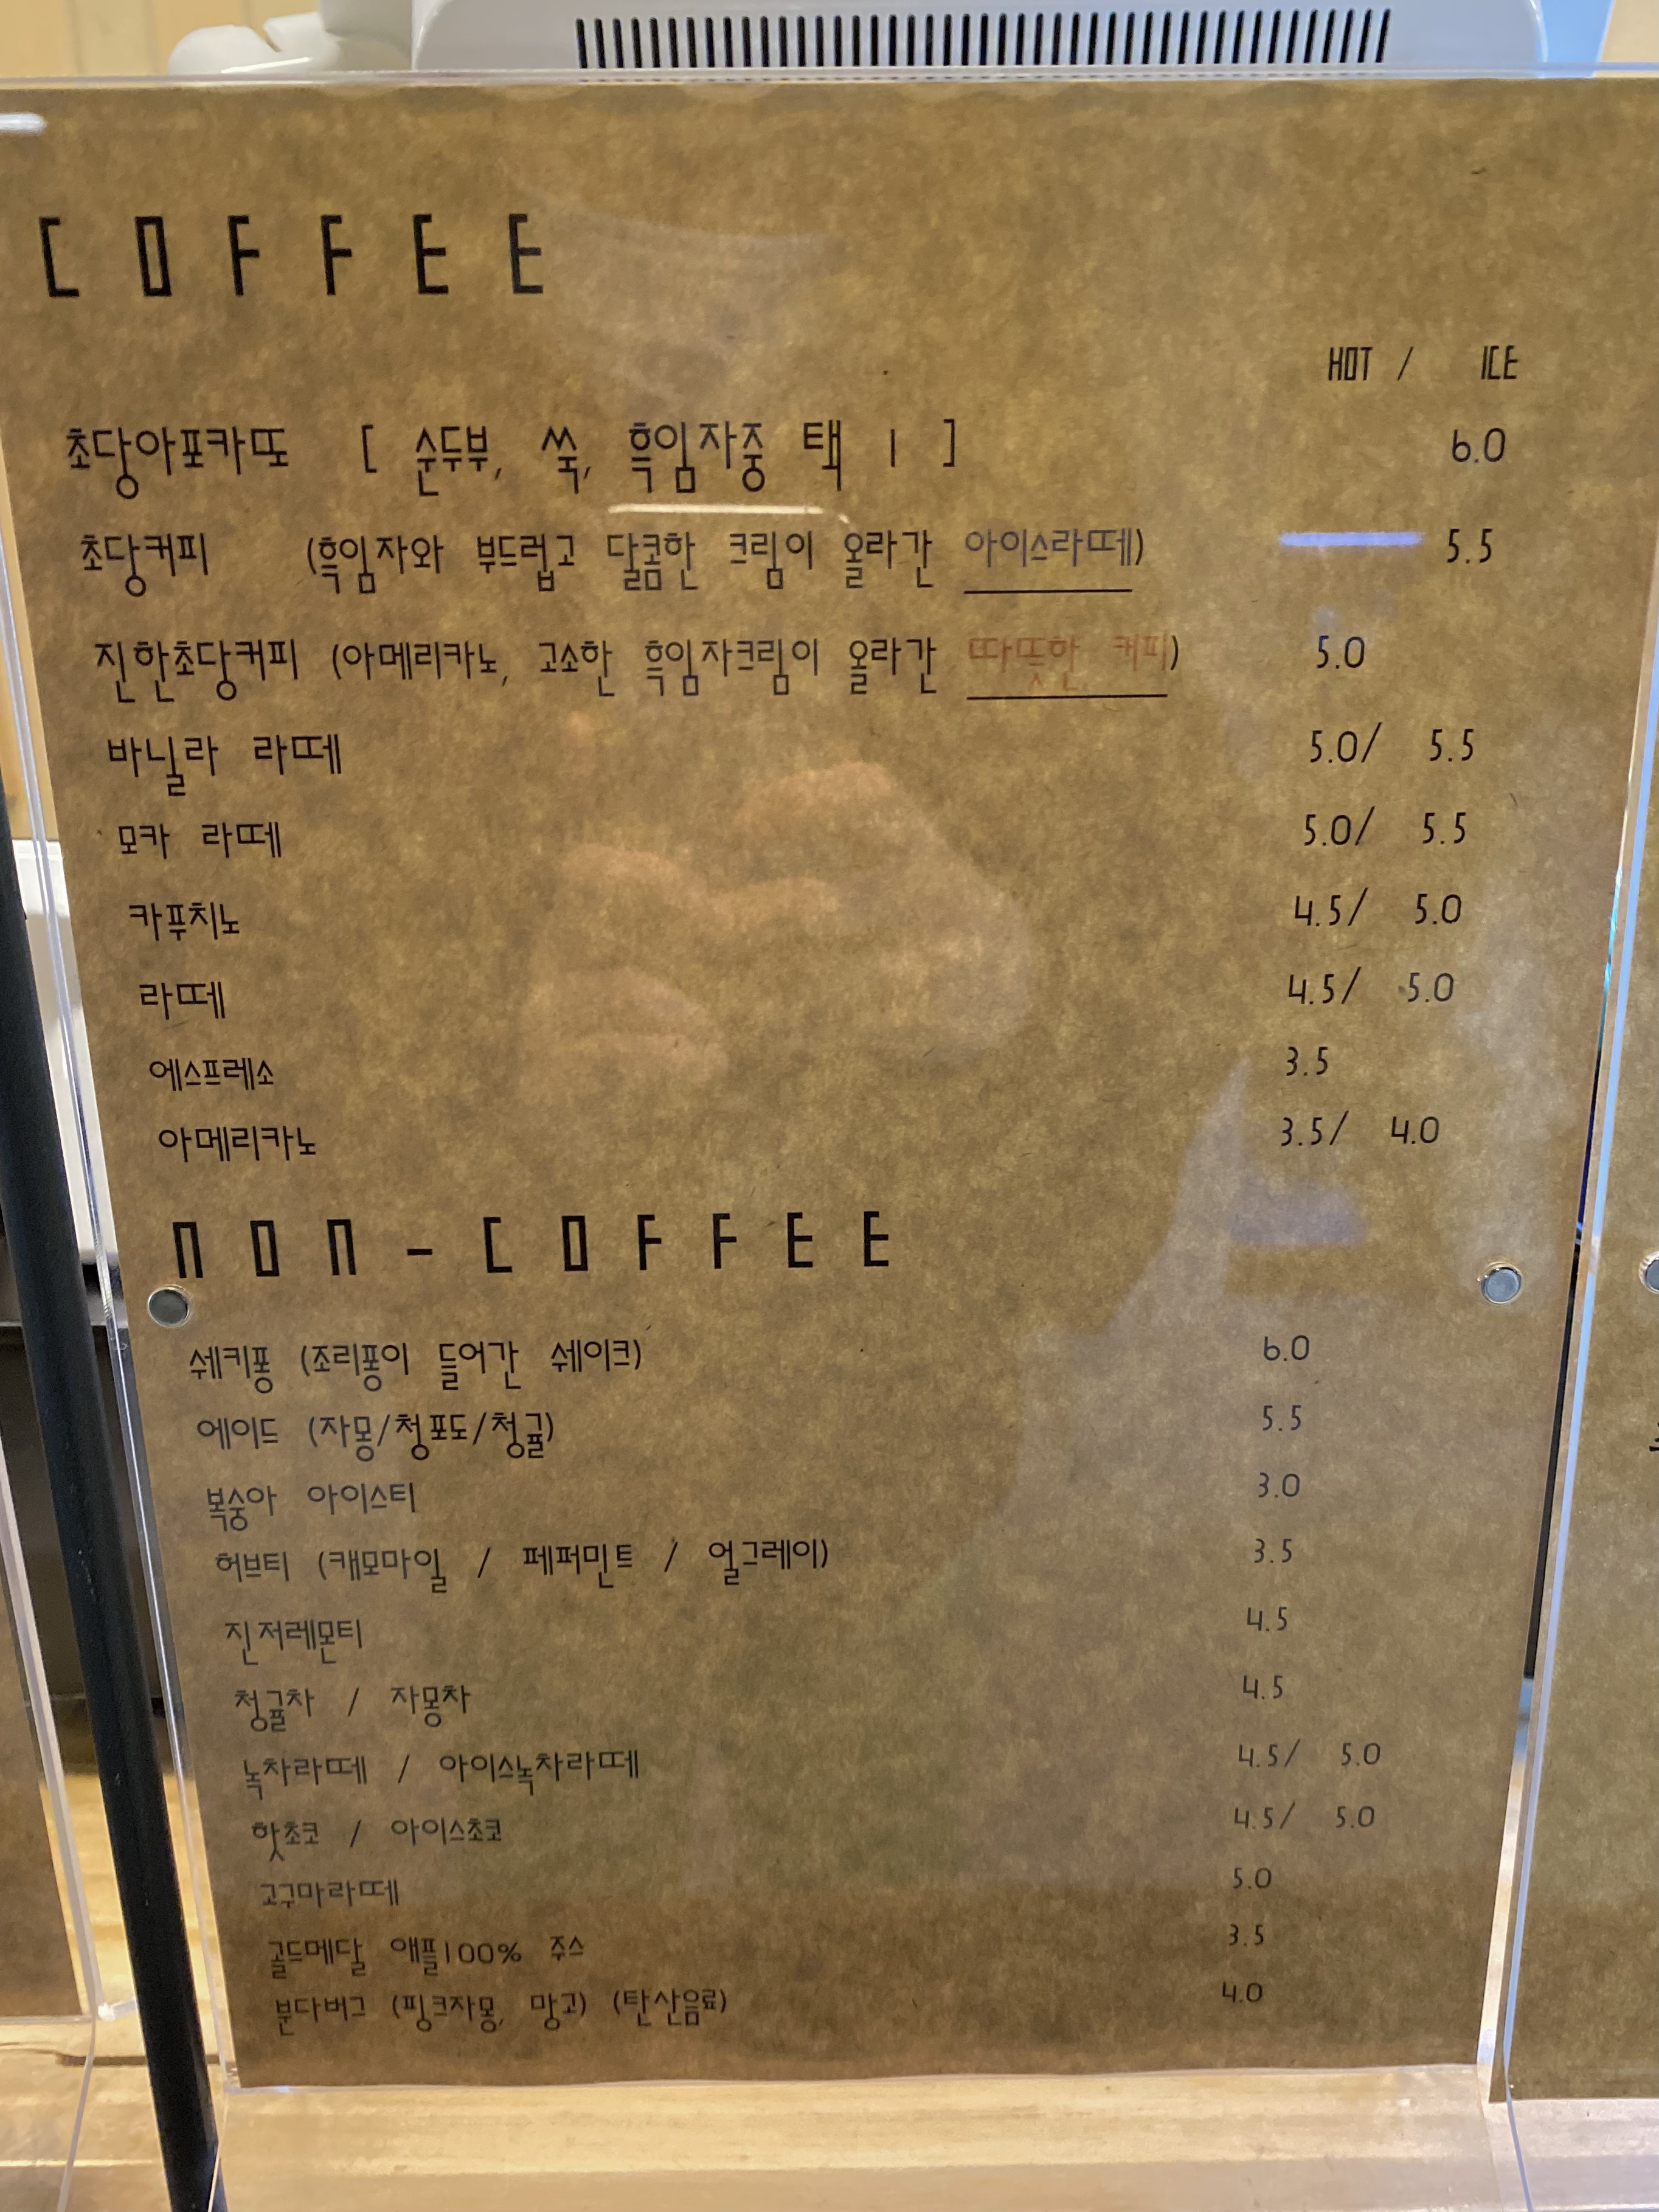 COFFEE
HOT / ICE
초당아포카또 [ 순두부, 쑥, 흑임자중 택 1 ] 6.0
초당커피 (흑임자와 부드럽고 달콤한 크림이 올라간 아이스라떼) 5.5
진한초당커피 (아메리카노, 고소한 흑임자크림이 올라간 따뜻한 커피) 5.0
바닐라 라떼 5.0/ 5.5
모카 라떼 5.0/ 5.5
카푸치노 4.5/ 5.0
라떼 4.5/ 5.0
에스프레소 3.5
아메리카노 3.5/ 4.0
NON-COFFEE
쉐키퐁 (조리퐁이 들어간 쉐이크) 6.0
에이드 (자몽/청포도/청귤) 5.5
복숭아 아이스티 3.0
허브티 (캐모마일 / 페퍼민트 / 얼그레이) 3.5
진저레몬티 4.5
청귤차 / 자몽차 4.5
녹차라떼 / 아이스녹차라떼 4.5/ 5.0
핫초코 / 아이스초코 4.5/ 5.0
고구마라떼 5.0
골드메달 애플100% 주스 3.5
분다버그 (핑크자몽, 망고) (탄산음료) 4.0